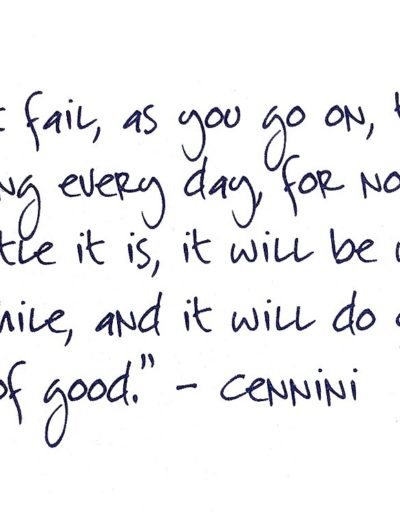 t fail, as you go on,
ng every day, for no
tle it is, it will be
hile, and it will do
of good." - Cennini